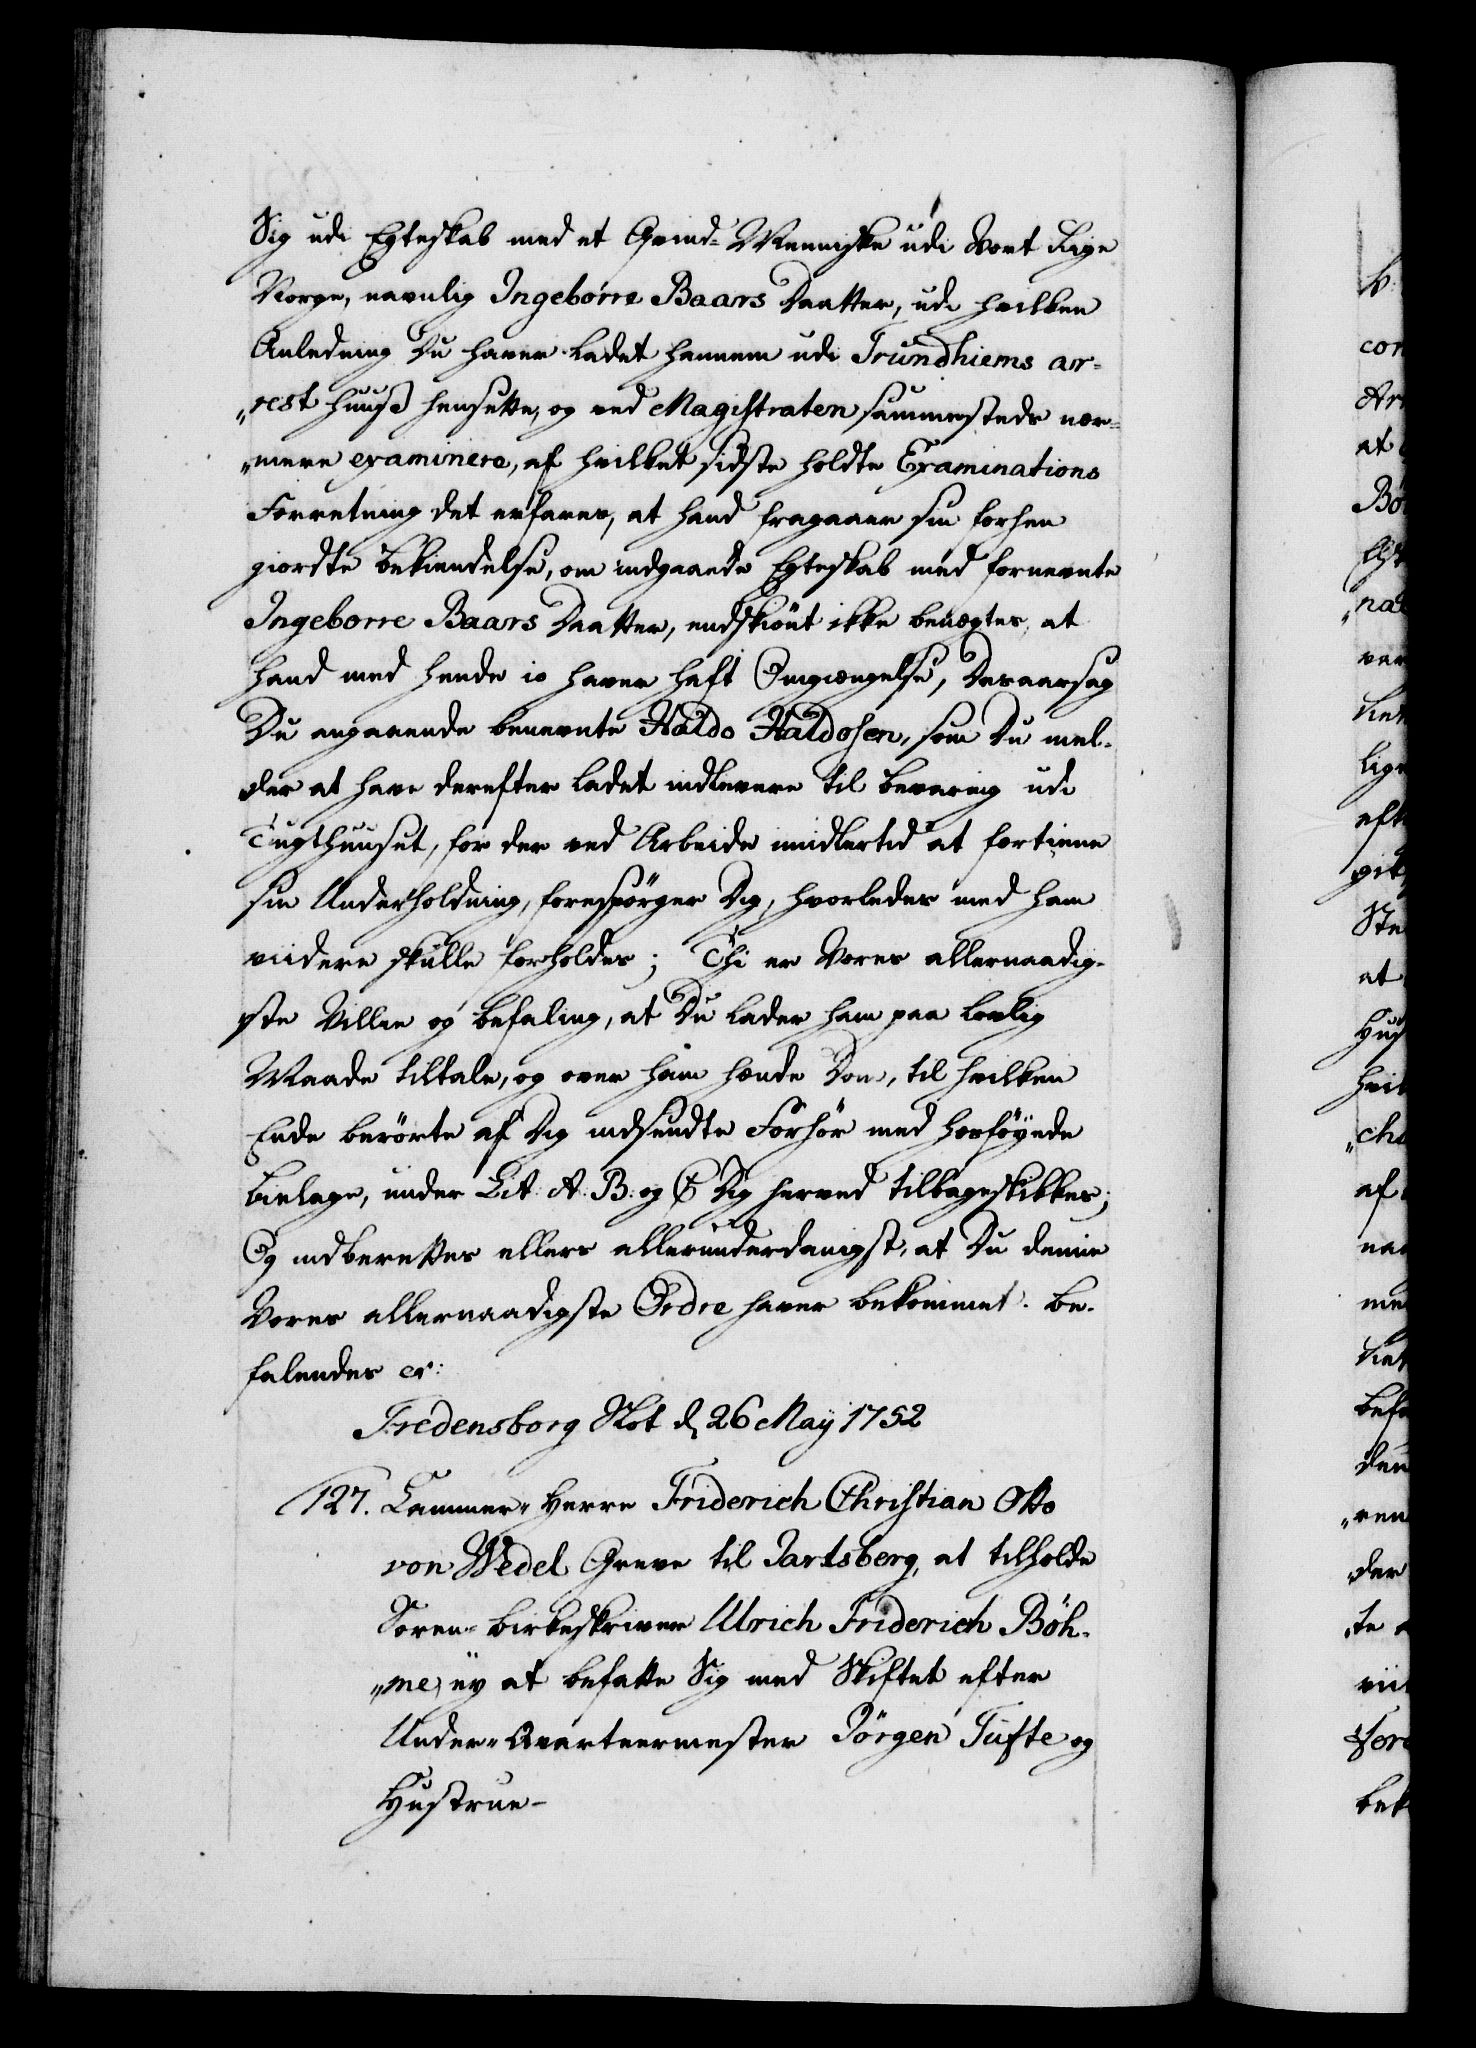 Sig udi Egteskab med et Qvind-Menniske udi Vort Rige
Norge, navnlig Ingebørre Baars Daatter, udi hvilken
Anledning Du haver ladet hannem udi Trundhiems ar-
„rest Huuß hensette, og ved Magistraten sammesteds nær-
„mere examinere, af hvilket sidste holdte Examinations
Forretning det erfares, at hand fragaaer sin forhen
giordte bekiendelse, om indgaaede Egteskab med fornevnte
Ingeborre Baars Daatter, endskiønt ikke benægtes, at
hand med hende jo haver haft Omgiængelse, Desaarsag
Du angaaende benevnte Haldo Haldosen, som Du mel-
der at have derefter ladet indlevere til bevaring udi
Tugthuuset, for der ved Arbeide imidlertid at fortiene
sin Underholdning, forespörger Dig, hvorledes med ham
viidere skulle forholdes; Thi er Vores allernaadig-
ste Villie og befaling, at Du lader ham paa lovlig
Maade tiltale, og over ham hænde Dom, til hvilken
Ende berörte af Dig indsendte Forhör med hosföyede
bielage, under Lit: A: B: og C Dig herved tilbageskikkes;
Og indberettes ellers allerunderdanigst, at Du denne
Vores allernaadigste Ordre haver bekommet. be-
falendes er:
Fredensborg Slot d 26 May 1752
127. Cammer-Herre Friderich Christian Otto
von Wedel Greve til Jarlsberg, at tilholde
Soren-birkeskriver Ulrich Friderich Böh-
„me, ey at befatte Sig med Skiftet efter
Under-Qvarteermester Jörgen Tufte og
Hustrue-